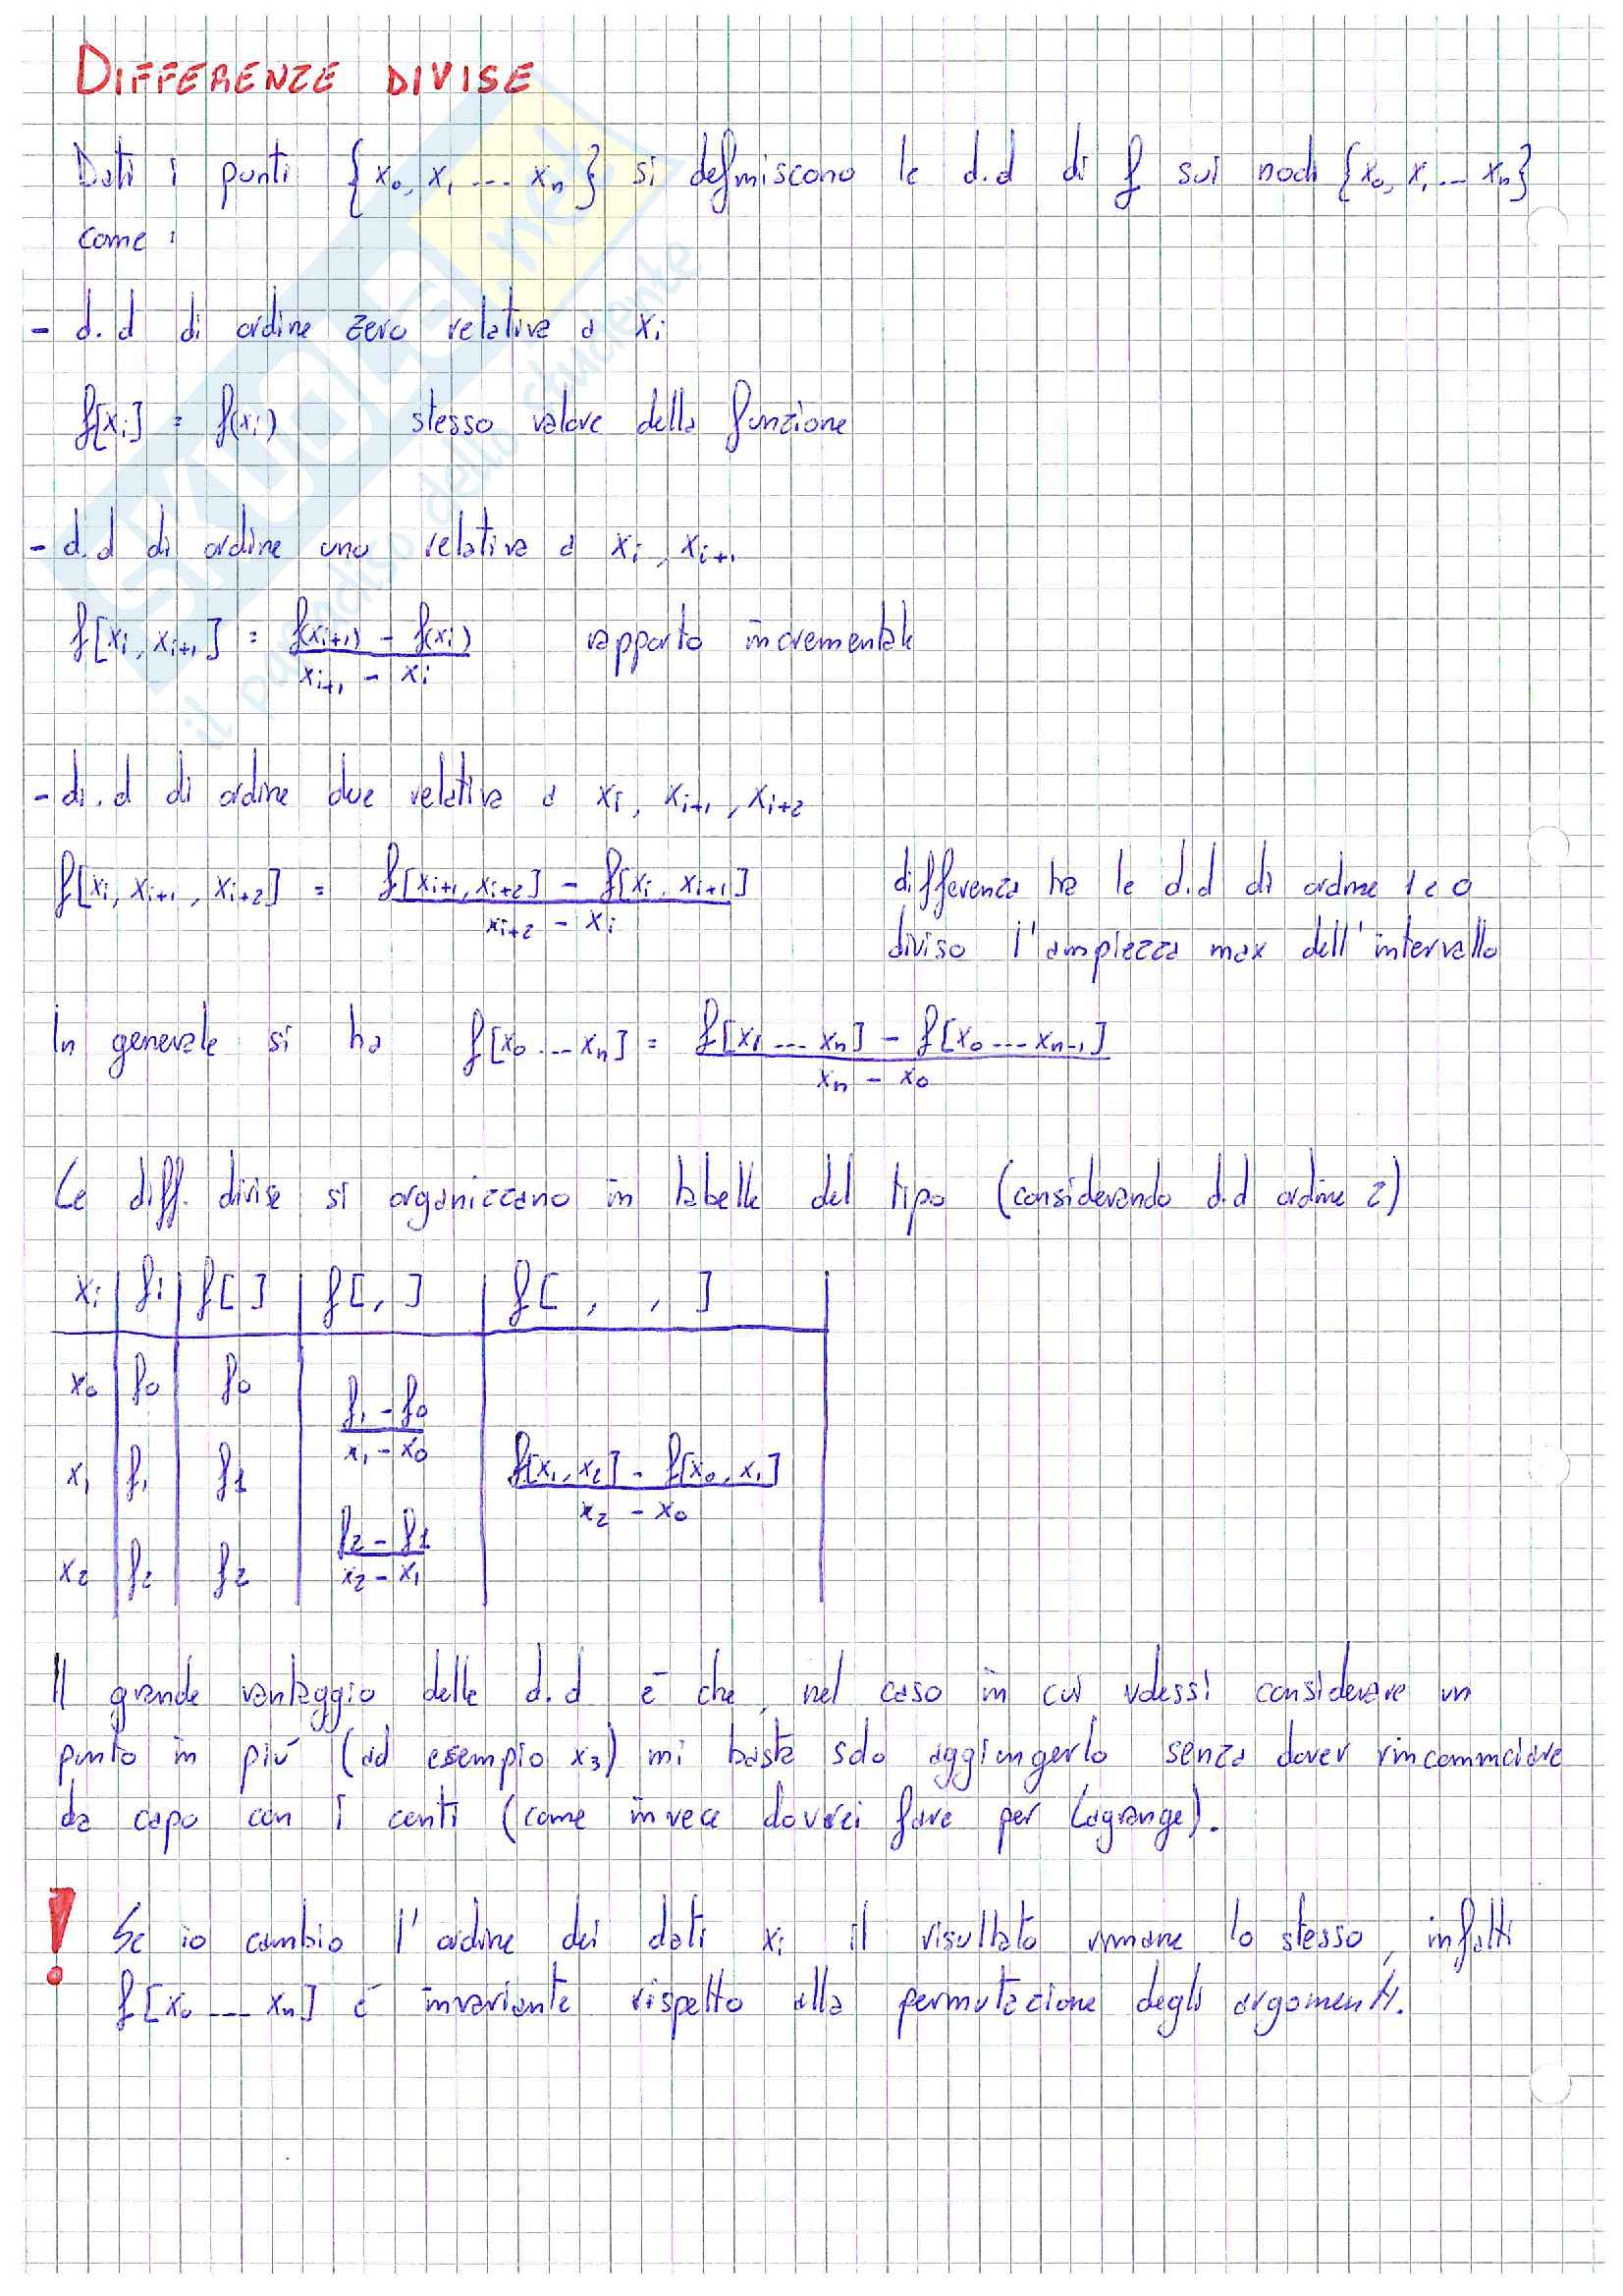 DIFFERENZE DIVISE
Dati i punti {x₀, x₁ ... xₙ} si definiscono le d.d di f sui nodi {x₀, x₁ ... xₙ}
come :
- d.d di ordine zero relativa a xᵢ
f[xᵢ] = f(xᵢ) stesso valore della funzione
- d.d di ordine uno relativa a xᵢ, xᵢ₊₁
f[xᵢ, xᵢ₊₁] = (f(xᵢ₊₁) - f(xᵢ)) / (xᵢ₊₁ - xᵢ) rapporto incrementale
- di.d di ordine due relativa a xᵢ, xᵢ₊₁, xᵢ₊₂
f[xᵢ, xᵢ₊₁, xᵢ₊₂] = (f[xᵢ₊₁, xᵢ₊₂] - f[xᵢ, xᵢ₊₁]) / (xᵢ₊₂ - xᵢ) differenza tra le d.d di ordine 1 e 0
diviso l'ampiezza max dell'intervallo
In generale si ha f[x₀ ... xₙ] = (f[x₁ ... xₙ] - f[x₀ ... xₙ₋₁]) / (xₙ - x₀)
Le diff. divise si organizzano in tabelle del tipo (considerando d.d ordine 2)
xᵢ | fᵢ | f[ ] | f[ , ] | f[ , , ]
x₀ | f₀ | f₀
(f₁ - f₀) / (x₁ - x₀)
x₁ | f₁ | f₁ | (f[x₁, x₂] - f[x₀, x₁]) / (x₂ - x₀)
(f₂ - f₁) / (x₂ - x₁)
x₂ | f₂ | f₂
Il grande vantaggio delle d.d è che, nel caso in cui volessi considerare un
punto in più (ad esempio x₃) mi basta solo aggiungerlo senza dover rincominciare
da capo con i conti (come invece dovrei fare per Lagrange).
! Se io cambio l'ordine dei dati xᵢ il risultato rimane lo stesso, infatti
f[x₀ ... xₙ] è invariante rispetto alla permutazione degli argomenti.
SKUOLA.net
il paradiso dello studente